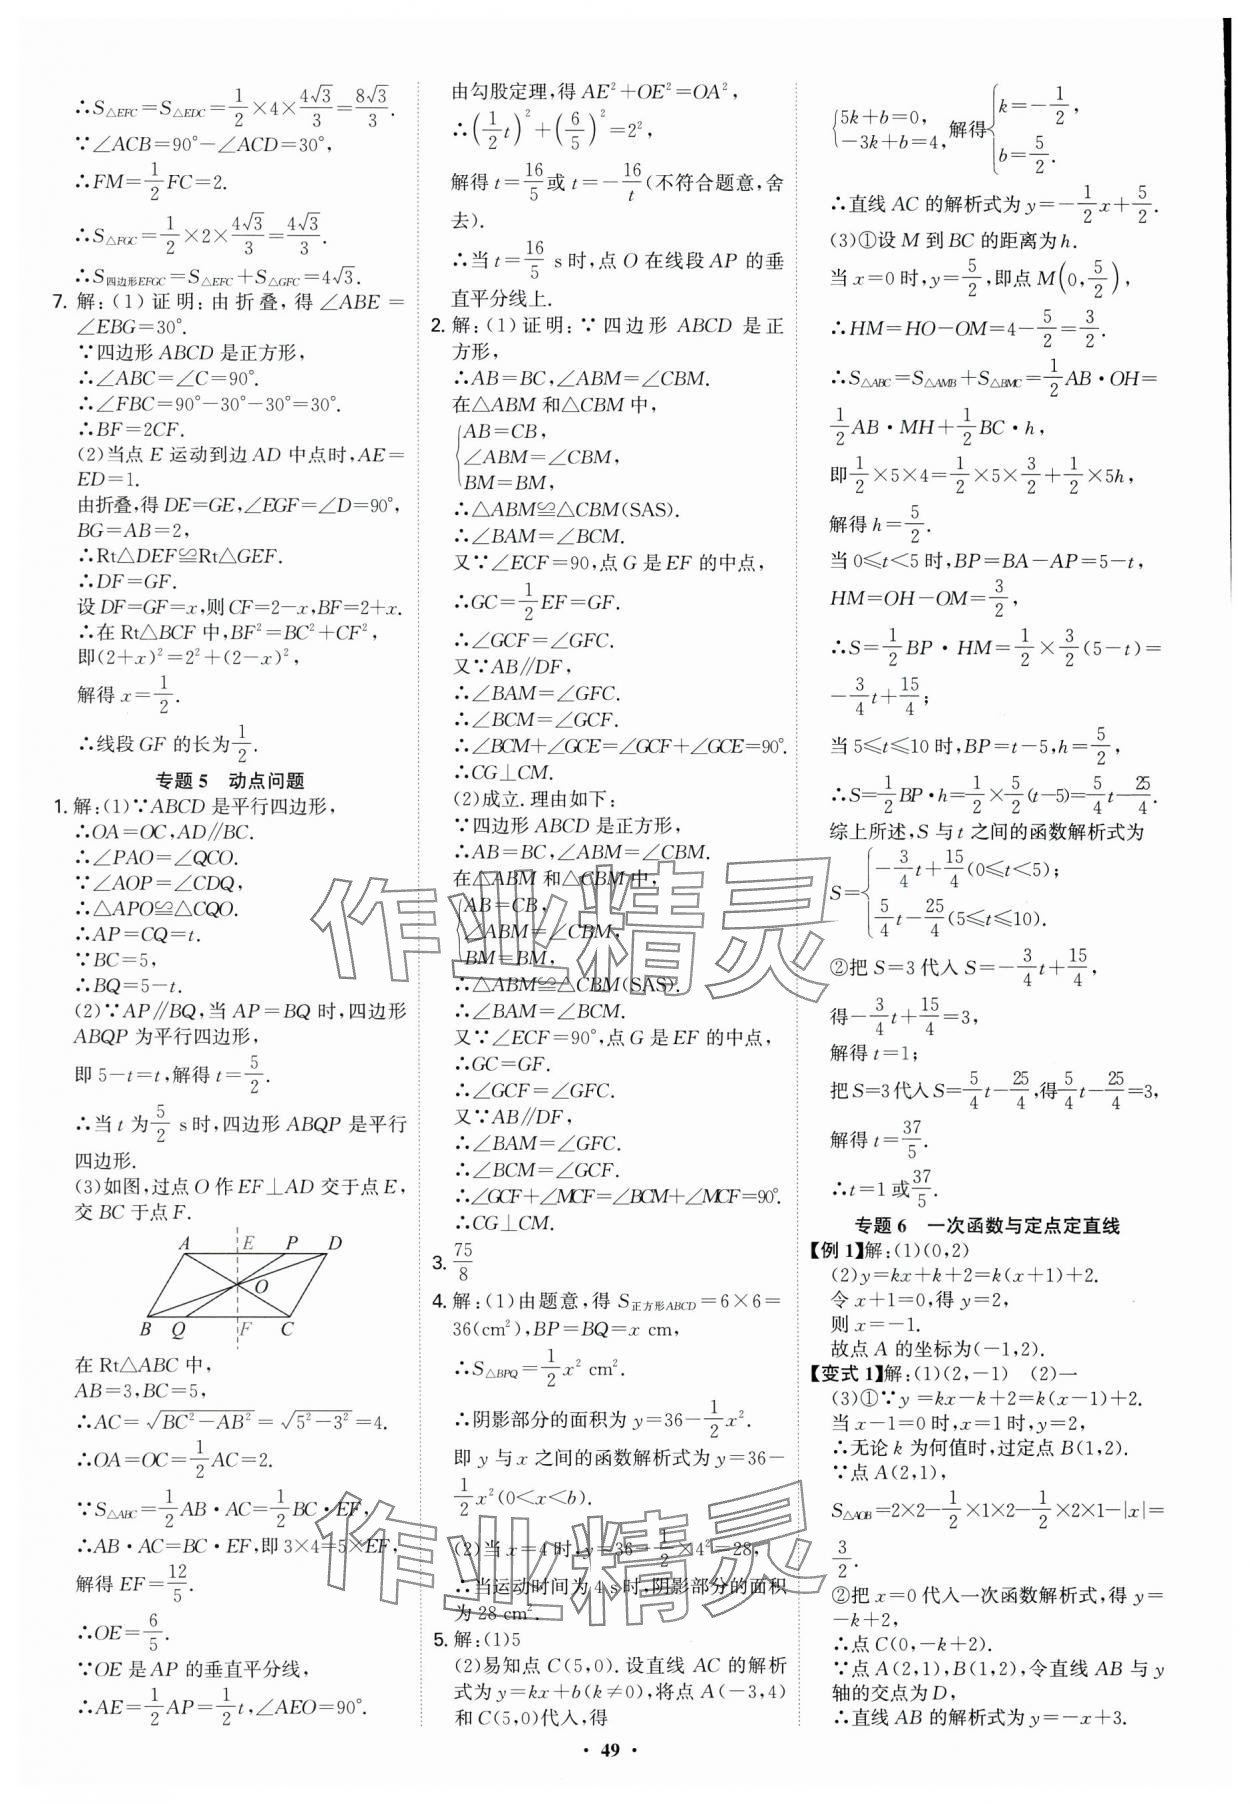 ∴S△EFC=S△EDC=1/2×4×4√3/3=8√3/3.
∵∠ACB=90°-∠ACD=30°,
∴FM=1/2FC=2.
∴S△FGC=1/2×2×4√3/3=4√3/3.
∴S四边形EFGC=S△EFC+S△GFC=4√3.
7. 解:(1)证明:由折叠,得∠ABE=
∠EBG=30°.
∵四边形ABCD是正方形,
∴∠ABC=∠C=90°.
∴∠FBC=90°-30°-30°=30°.
∴BF=2CF.
(2)当点E运动到边AD中点时,AE=
ED=1.
由折叠,得DE=GE,∠EGF=∠D=90°,
BG=AB=2,
∴Rt△DEF≌Rt△GEF.
∴DF=GF.
设DF=GF=x,则CF=2-x,BF=2+x.
∴在Rt△BCF中,BF²=BC²+CF²,
即(2+x)²=2²+(2-x)²,
解得x=1/2.
∴线段GF的长为1/2.
专题5 动点问题
1. 解:(1)∵ABCD是平行四边形,
∴OA=OC,AD∥BC.
∴∠PAO=∠QCO.
∵∠AOP=∠CDQ,
∴△APO≌△CQO.
∴AP=CQ=t.
∵BC=5,
∴BQ=5-t.
(2)∵AP∥BQ,当AP=BQ时,四边形
ABQP为平行四边形,
即5-t=t,解得t=5/2.
∴当t为5/2 s时,四边形ABQP是平行
四边形.
(3)如图,过点O作EF⊥AD交于点E,
交BC于点F.
A E P D
O
B Q F C
在Rt△ABC中,
AB=3,BC=5,
∴AC=√(BC²-AB²)=√(5²-3²)=4.
∴OA=OC=1/2AC=2.
∵S△ABC=1/2AB·AC=1/2BC·EF,
∴AB·AC=BC·EF,即3×4=5×EF,
解得EF=12/5.
∴OE=6/5.
∵OE是AP的垂直平分线,
∴AE=1/2AP=1/2t,∠AEO=90°.
由勾股定理,得AE²+OE²=OA²,
∴(1/2t)²+(6/5)²=2²,
解得t=16/5或t=-16/t(不符合题意,舍
去).
∴当t=16/5 s时,点O在线段AP的垂
直平分线上.
2. 解:(1)证明:∵四边形ABCD是正
方形,
∴AB=BC,∠ABM=∠CBM.
在△ABM和△CBM中,
{AB=CB,
∠ABM=∠CBM,
BM=BM,
∴△ABM≌△CBM(SAS).
∴∠BAM=∠BCM.
又∵∠ECF=90,点G是EF的中点,
∴GC=1/2EF=GF.
∴∠GCF=∠GFC.
又∵AB∥DF,
∴∠BAM=∠GFC.
∴∠BCM=∠GCF.
∴∠BCM+∠GCE=∠GCF+∠GCE=90°.
∴CG⊥CM.
(2)成立.理由如下:
∵四边形ABCD是正方形,
∴AB=BC,∠ABM=∠CBM.
在△ABM和△CBM中,
{AB=CB,
∠ABM=∠CBM,
BM=BM,
∴△ABM≌△CBM(SAS).
∴∠BAM=∠BCM.
又∵∠ECF=90°,点G是EF的中点,
∴GC=GF.
∴∠GCF=∠GFC.
又∵AB∥DF,
∴∠BAM=∠GFC.
∴∠BCM=∠GCF.
∴∠GCF+∠MCF=∠BCM+∠MCF=90°.
∴CG⊥CM.
3. 75/8
4. 解:(1)由题意,得S正方形ABCD=6×6=
36(cm²),BP=BQ=x cm,
∴S△BPQ=1/2x² cm².
∴阴影部分的面积为y=36-1/2x².
即y与x之间的函数解析式为y=36-
1/2x²(0<x<b).
(2)当x=4时,y=36-1/2×4²=28,
∴当运动时间为4 s时,阴影部分的面积
为28 cm².
5. 解:(1)5
(2)易知点C(5,0).设直线AC的解析
式为y=kx+b(k≠0),将点A(-3,4)
和C(5,0)代入,得
{5k+b=0, -3k+b=4, 解得{k=-1/2, b=5/2.
∴直线AC的解析式为y=-1/2x+5/2.
(3)①设M到BC的距离为h.
当x=0时,y=5/2,即点M(0,5/2),
∴HM=HO-OM=4-5/2=3/2.
∴S△ABC=S△AMB+S△BMC=1/2AB·OH=
1/2AB·MH+1/2BC·h,
即1/2×5×4=1/2×5×3/2+1/2×5h,
解得h=5/2.
当0≤t<5时,BP=BA-AP=5-t,
HM=OH-OM=3/2,
∴S=1/2BP·HM=1/2×3/2(5-t)=
-3/4t+15/4;
当5≤t≤10时,BP=t-5,h=5/2,
∴S=1/2BP·h=1/2×5/2(t-5)=5/4t-25/4.
综上所述,S与t之间的函数解析式为
S={-3/4t+15/4(0≤t<5);
5/4t-25/4(5≤t≤10).
②把S=3代入S=-3/4t+15/4,
得-3/4t+15/4=3,
解得t=1;
把S=3代入S=5/4t-25/4,得5/4t-25/4=3,
解得t=37/5.
∴t=1或37/5.
专题6 一次函数与定点定直线
【例1】解:(1)(0,2)
(2)y=kx+k+2=k(x+1)+2.
令x+1=0,得y=2,
则x=-1.
故点A的坐标为(-1,2).
【变式1】解:(1)(2,-1) (2)一
(3)①∵y=kx-k+2=k(x-1)+2.
当x-1=0时,x=1时,y=2,
∴无论k为何值时,过定点B(1,2).
∵点A(2,1),
S△AOB=2×2-1/2×1×2-1/2×2×1-|x|=
3/2.
②把x=0代入一次函数解析式,得y=
-k+2,
∴点C(0,-k+2).
∵点A(2,1),B(1,2),令直线AB与y
轴的交点为D,
∴直线AB的解析式为y=-x+3.
· 49 ·
作业精灵
作业精灵